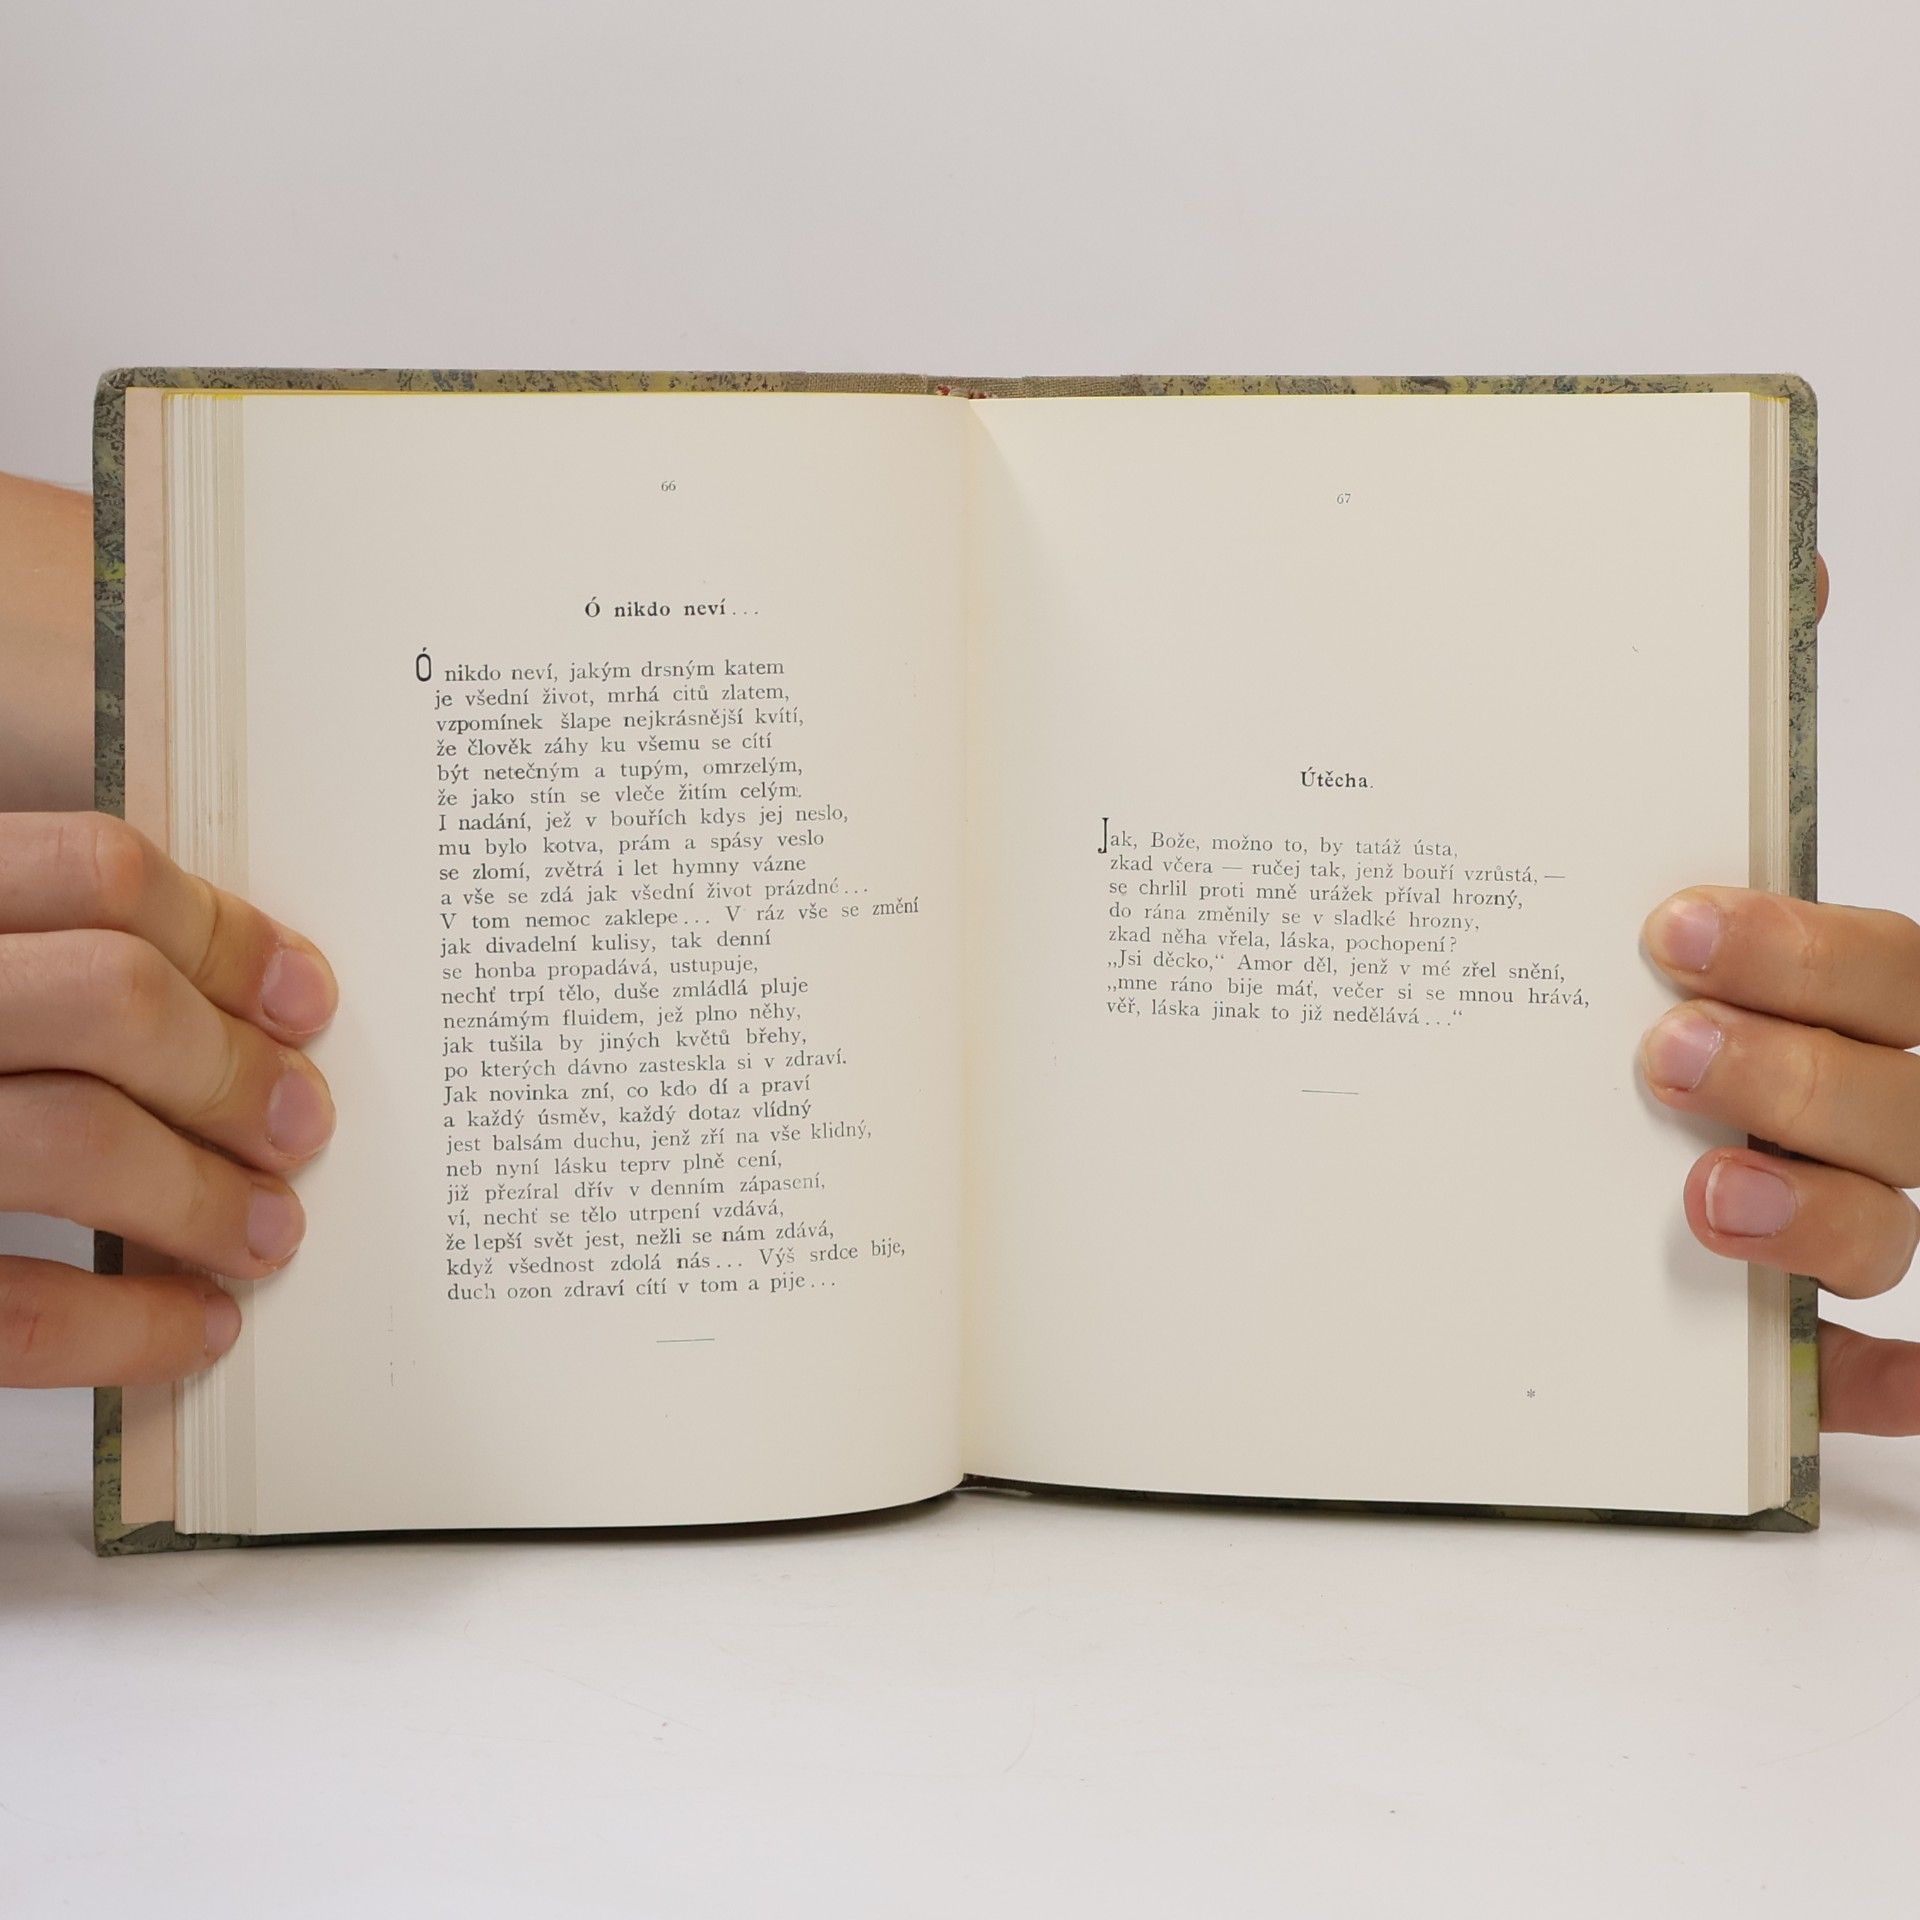 66
Ó nikdo neví...
Ó nikdo neví, jakým drsným katem
je všední život, mrhá citů zlatem,
vzpomínek šlape nejkrásnější kvítí,
že člověk záhy ku všemu se cítí
být netečným a tupým, omrzelým,
že jako stín se vleče žitím celým.
I nadání, jež v bouřích kdys jej neslo,
mu bylo kotva, prám a spásy veslo
se zlomí, zvětrá i let hymny vázne
a vše se zdá jak všední život prázdné...
V tom nemoc zaklepe... V ráz vše se změní
jak divadelní kulisy, tak denní
se honba propadává, ustupuje,
nechť trpí tělo, duše zmládlá pluje
neznámým fluidem, jež plno něhy,
jak tušila by jiných květů břehy,
po kterých dávno zasteskla si v zdraví.
Jak novinka zní, co kdo dí a praví
a každý úsměv, každý dotaz vlídný
jest balsám duchu, jenž zří na vše klidný,
neb nyní lásku teprv plně cení,
již přezíral dřív v denním zápasení,
ví, nechť se tělo utrpení vzdává,
že lepší svět jest, nežli se nám zdává,
když všednost zdolá nás... Výš srdce bije,
duch ozon zdraví cítí v tom a pije...
67
Útěcha.
Jak, Bože, možno to, by tatáž ústa,
zkad včera — ručej tak, jenž bouří vzrůstá, —
se chrlil proti mně urážek příval hrozný,
do rána změnily se v sladké hrozny,
zkad něha vřela, láska, pochopení?
„Jsi děcko,“ Amor děl, jenž v mé zřel snění,
„mne ráno bije máť, večer si se mnou hrává,
věř, láska jinak to již nedělává...“
*